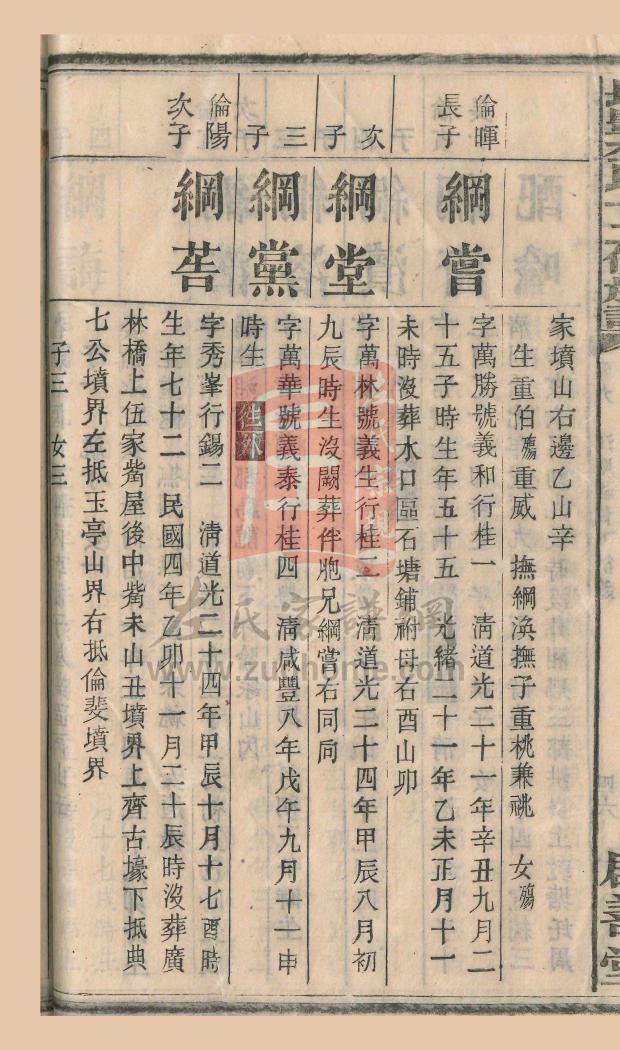 家墳山右邊乙山辛
生重伯殤重威 撫綱渙撫子重桃兼祧 女殤
倫暉
長子
綱嘗
字萬勝號義和行桂一 清道光二十一年辛丑九月二
十五子時生年五十五 光緒二十一年乙未正月十一
未時沒葬水口區石塘鋪祔母右酉山卯
次子
綱堂
字萬林號義生行桂三 清道光二十四年甲辰八月初
九辰時生沒闕葬伴胞兄綱嘗右同向
三子
綱黨
字萬華號義泰行桂四 清咸豐八年戊午九月十一申
時生
倫陽
次子
綱莟
字秀峯行錫二 清道光二十四年甲辰十月十七酉時
生年七十二 民國四年乙卯十一月二十辰時沒葬廣
林橋上伍家嵴屋後中嵴未山丑墳界上齊古壕下抵典
七公墳界左抵玉亭山界右抵倫斐墳界
子三 女三
左氏家譜網
www.zuohome.com